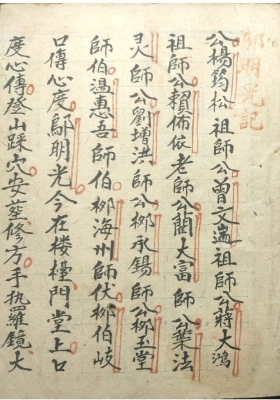 鄔明光記
公楊筠松祖師公曾文遄祖師公蔣大鴻
祖師公賴佈依老師公藺大富師公葉法
灵師公劉增洪師公柳承錫師公柳玉堂
師伯溫惠吾師伯柳海州師伏柳伯岐
口傳心度鄔明光今在楼檯門堂上口
度心傳登山踩穴安莝修方手执羅鏡大